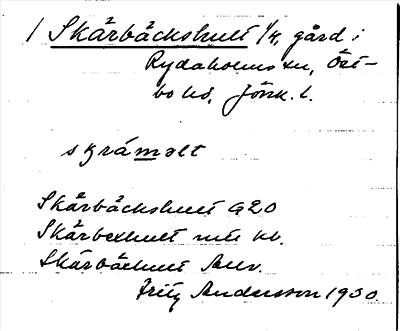 / Skärbäckshult 1/4, gård i
Rydaholms sn, Öst-
bo hd, Jönk. l.
skrámǝlt
Skärbäckshult G20
Skärbexhult
Skärbächult
Fritz Andersson 1930.